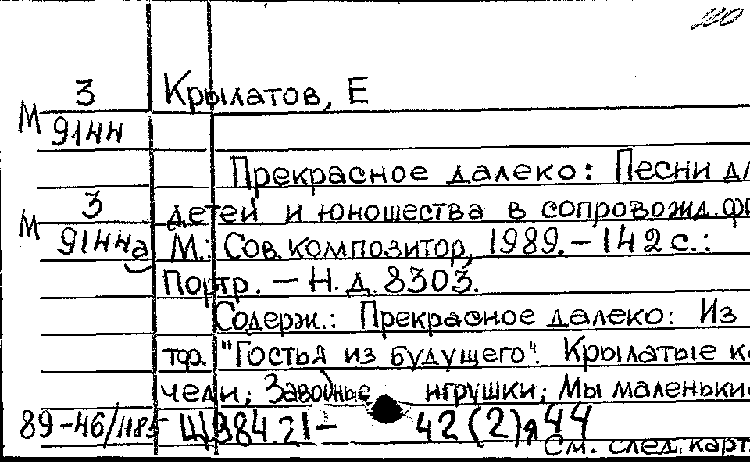 М 3 Крылатов, Е
9144
Прекрасное далеко: Песни
М 3 детей и юношества в сопровожд.
9144а М.: Сов. композитор, 1989. – 142 с.:
Портр. – Н. д. 8303.
Содерж.: Прекрасное далеко: Из
тф. "Гостья из будущего". Крылатые
чели; Заводные игрушки; Мы
89-46/1185 Щ984.21- 42(2)я44
См. след. карт